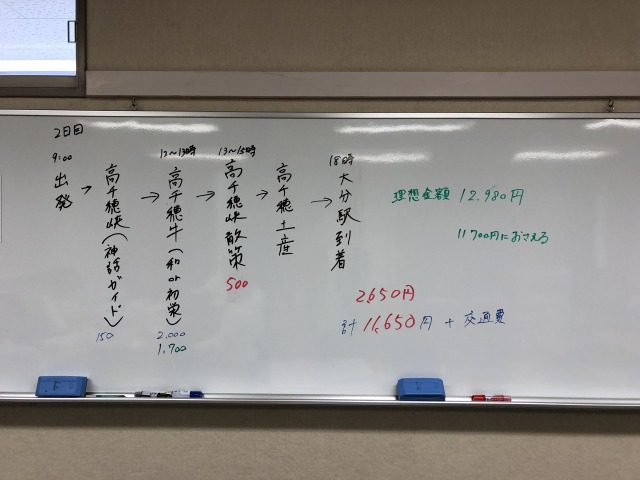 2日目
9:00
出発
→
高千穂峡(神話ガイド)
150
→
12～13時
高千穂牛(和or初栄)
2.000
1.700
→
13～15時
高千穂峡散策
500
→
高千穂土産
→
18時
大分駅到着
理想金額 12,980円
11700円におさえる
2,650円
計 11,650円 + 交通費